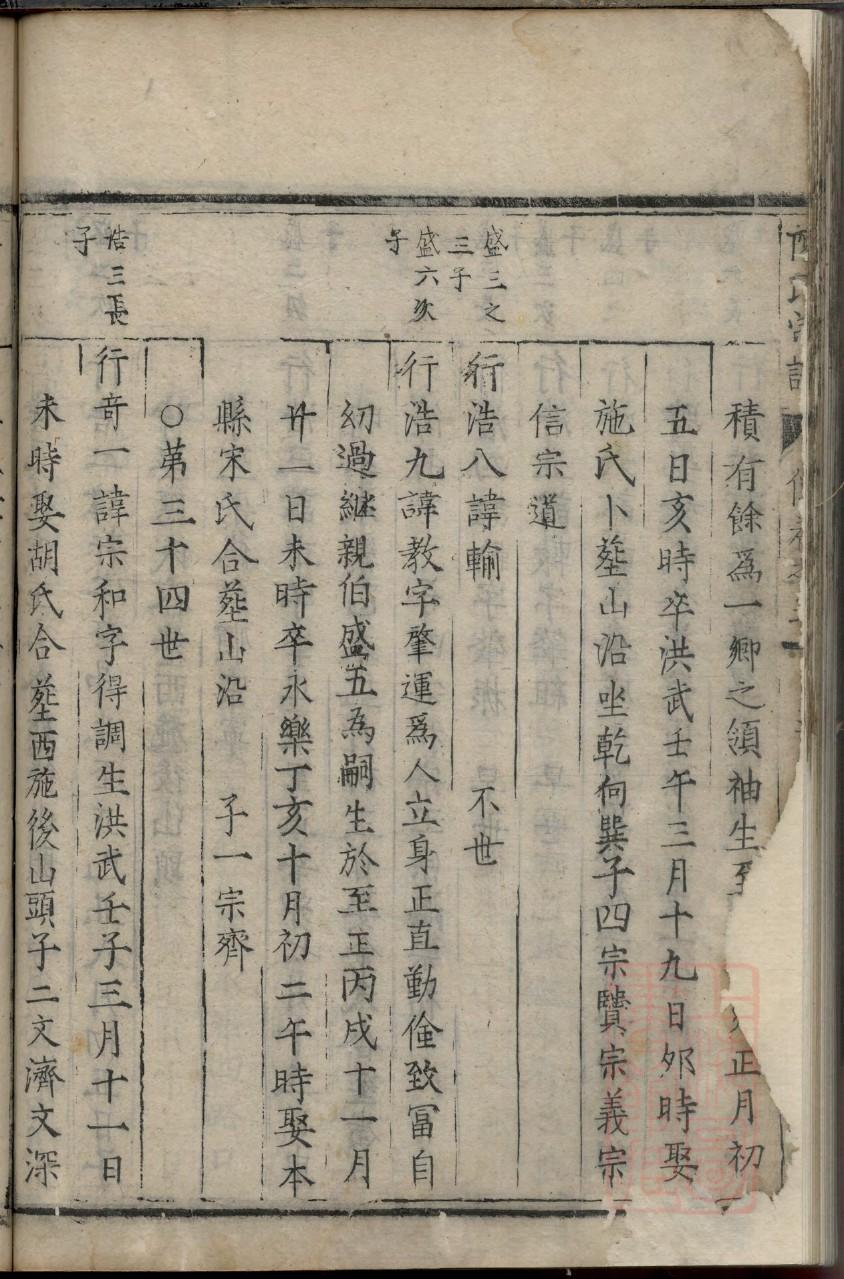 積有餘為一鄉之領袖生至正月初
五日亥時卒洪武壬午三月十九日夘時娶
施氏卜塟山沿坐乾向巽子四宗贒宗義宗
信宗道
盛三之
三子
行浩八諱輸 不世
盛六次
子
行浩九諱教字肇運爲人立身正直勤儉致冨自
幼過継親伯盛五為嗣生於至正丙戌十一月
廿一日未時卒永樂丁亥十月初二午時娶本
縣宋氏合塟山沿 子一宗齊
○第三十四世
浩三長
子
行竒一諱宗和字得調生洪武壬子三月十一日
未時娶胡氏合塟西施後山頭子二文濟文深